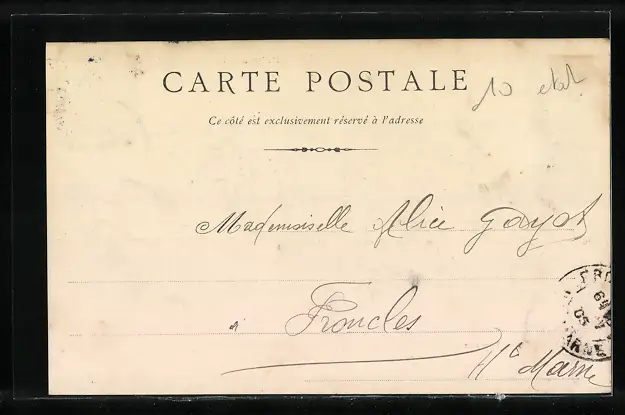 CARTE POSTALE
10 etat
Ce côté est exclusivement réservé à l'adresse
Mademoiselle Alice Gayot
à Froncles
Hte Marne
FRO
05
ARNE